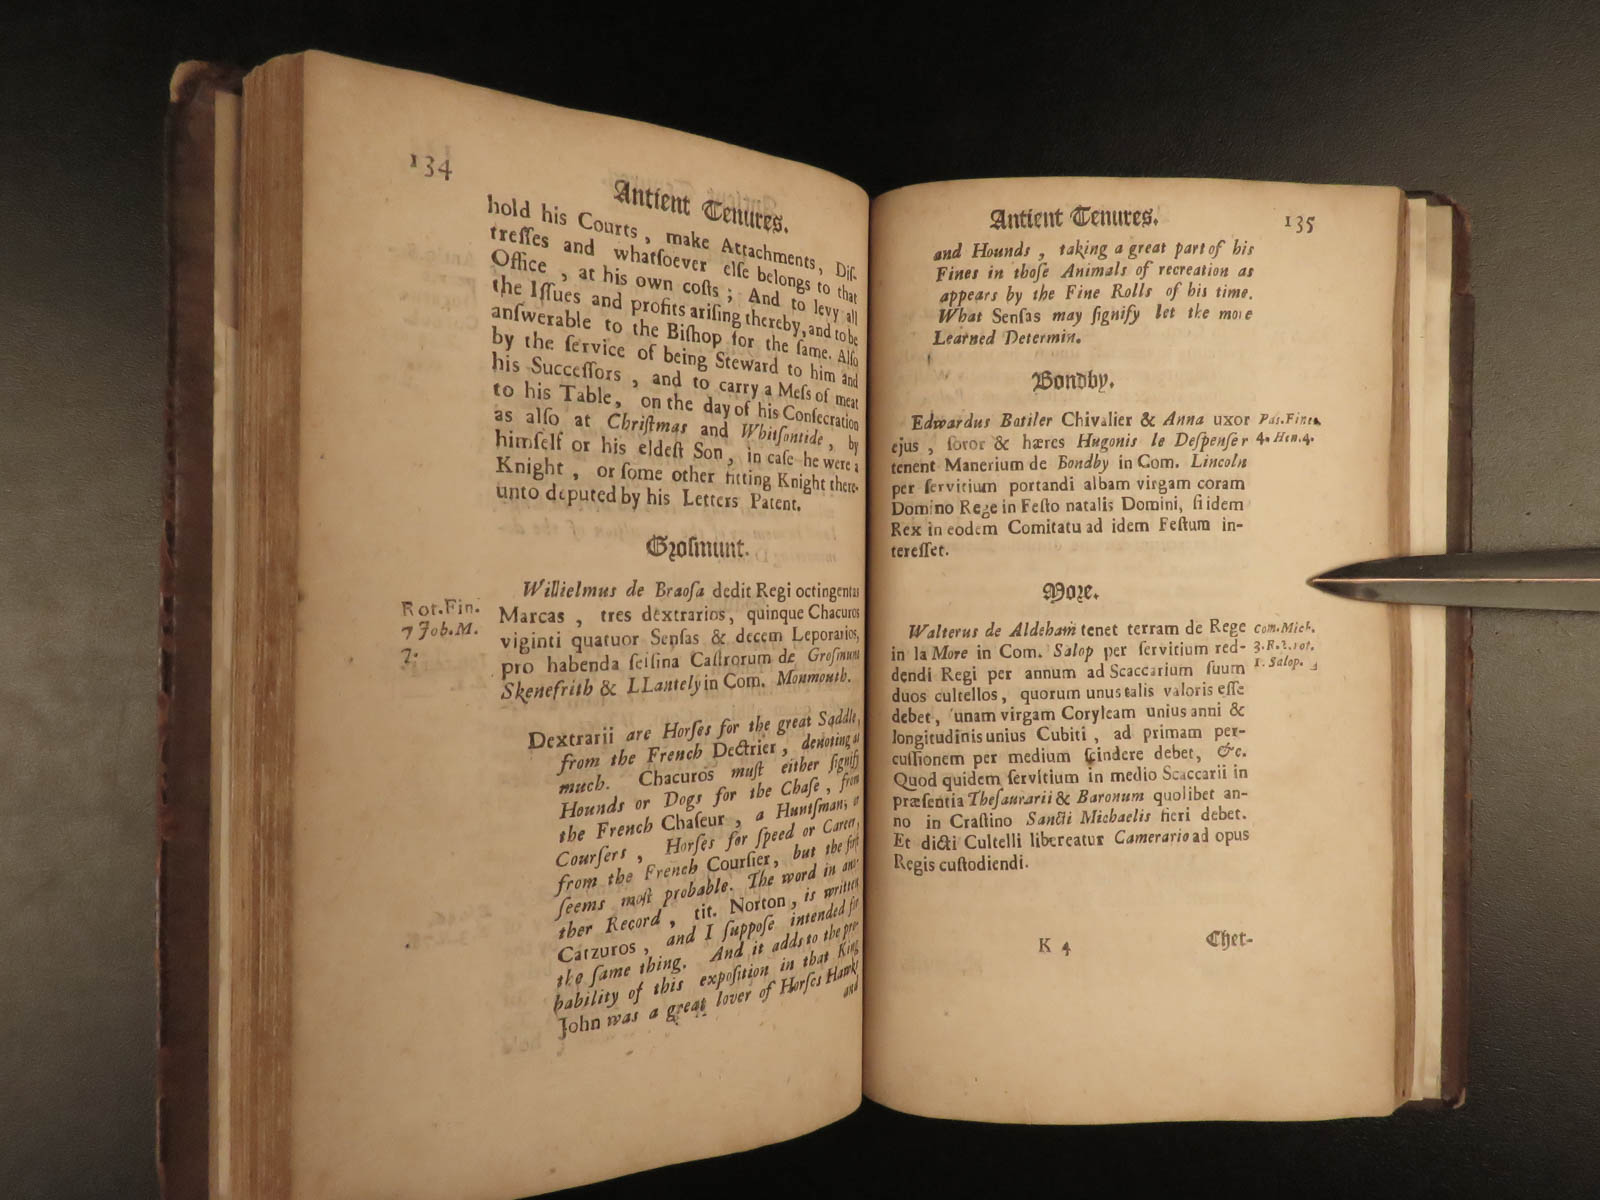 134
Antient Tenures.
hold his Courts, make Attachments, Diſ-
treſſes and whatſoever elſe belongs to that
Office, at his own coſts; And to levy all
the Iſſues and profits ariſing thereby, and to be
anſwerable to the Biſhop for the ſame. Alſo
by the ſervice of being Steward to him and
his Succeſſors, and to carry a Meſs of meat
to his Table, on the day of his Conſecration
as alſo at Chriſtmas and Whitſontide, by
himſelf or his eldeſt Son, in caſe he were a
Knight, or ſome other fitting Knight there-
unto deputed by his Letters Patent.
Groſmunt.
Rot. Fin.
7 Joh. M.
7.
Willielmus de Braoſa dedit Regi octingentas
Marcas, tres dextrarios, quinque Chacuros
viginti quatuor Senſas & decem Leporarios,
pro habenda ſeiſina Caſtrorum de Groſmunt
Skenefrith & LLantely in Com. Monmouth.
Dextrarii are Horſes for the great Saddle,
from the French Dectrier, denoting as
much. Chacuros muſt either ſignify
Hounds or Dogs for the Chaſe, from
the French Chaſeur, a Huntſman; or
Courſers, Horſes for ſpeed or Career,
from the French Courſier, but the firſt
ſeems moſt probable. The word in ano-
ther Record, tit. Norton, is written
Catzuros, and I ſuppoſe intended for
the ſame thing. And it adds to the pro-
bability of this expoſition in that King
John was a great lover of Horſes Hawks
and
Antient Tenures. 135
and Hounds, taking a great part of his
Fines in thoſe Animals of recreation as
appears by the Fine Rolls of his time.
What Sensas may ſignify let the more
Learned Determin.
Bondby.
Edwardus Botiler Chivalier & Anna uxor
ejus, ſoror & hæres Hugonis le Deſpenſer
tenent Manerium de Bondby in Com. Lincoln
per ſervitium portandi albam virgam coram
Domino Rege in Feſto natalis Domini, ſi idem
Rex in eodem Comitatu ad idem Feſtum in-
tereſſet.
Pas. Fines
4. Hen. 4.
More.
Walterus de Aldeham tenet terram de Rege
in la More in Com. Salop per ſervitium red-
dendi Regi per annum ad Scaccarium ſuum
duos cultellos, quorum unus talis valoris eſſe
debet, unam virgam Coryleam unius anni &
longitudinis unius Cubiti, ad primam per-
cuſſionem per medium ſcindere debet, &c.
Quod quidem ſervitium in medio Scaccarii in
præſentia Theſaurarii & Baronum quolibet an-
no in Craſtino Sancti Michaelis fieri debet.
Et dicti Cultelli libereatur Camerario ad opus
Regis cuſtodiendi.
Com. Mich.
3. R. 2. rot.
1. Salop.
K 4
Chet-